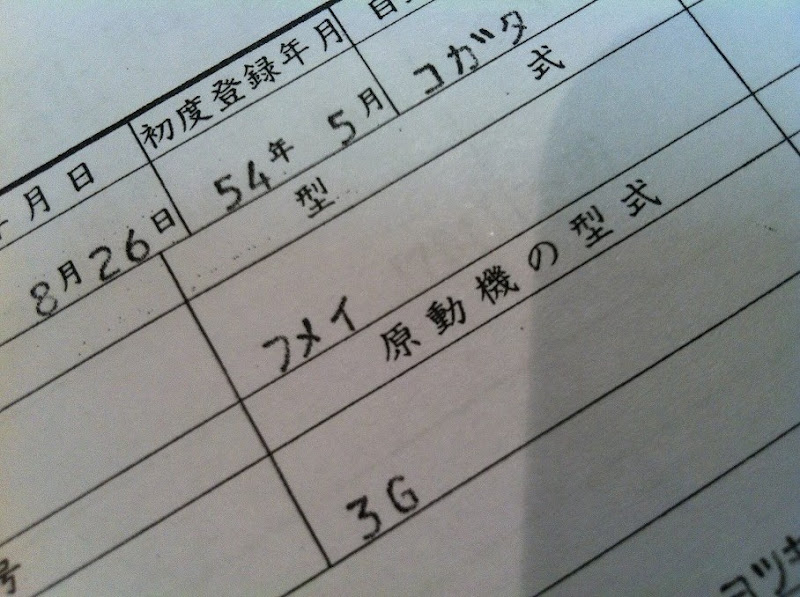 月日 初度登録年月
8月26日 54年 5月 コガタ
型 式
フメイ
原動機の型式
3G
号
ヨツキ